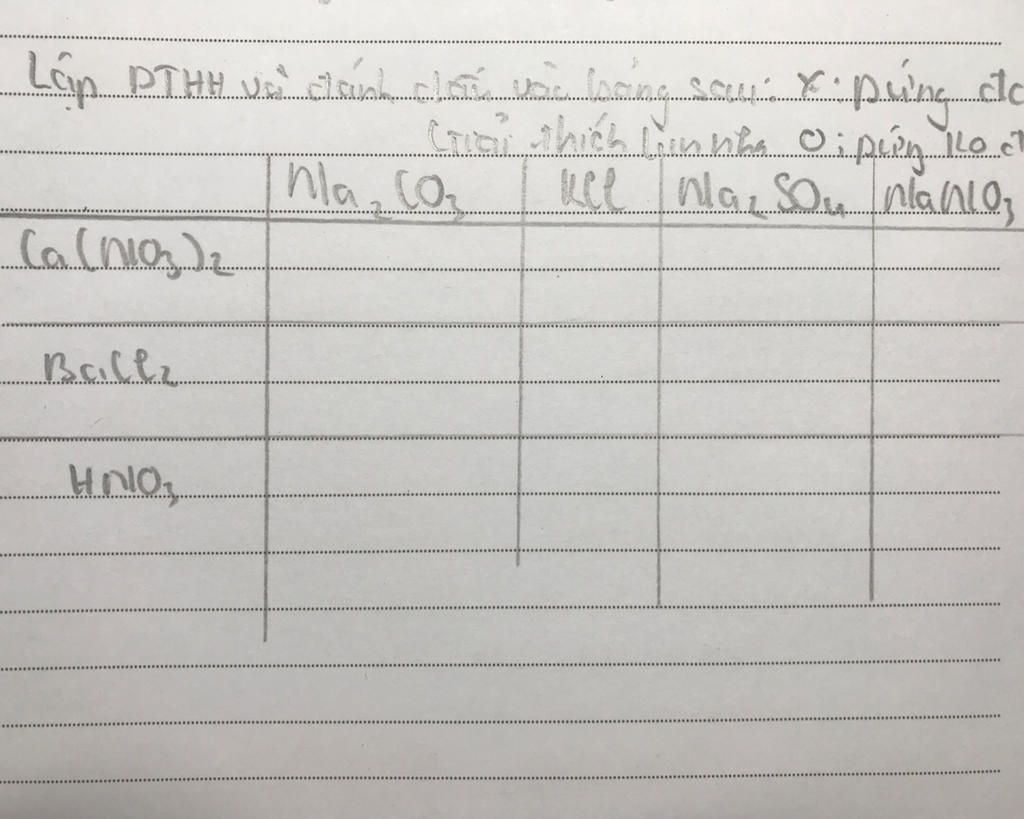 Lập PTHH và đánh dấu vào bảng sau: x: pứng đc
Giải thích luôn nha O: pứng ko đ
Na₂CO₃ KCl Na₂SO₄ NaNO₃
Ca(NO₃)₂
BaCl₂
HNO₃